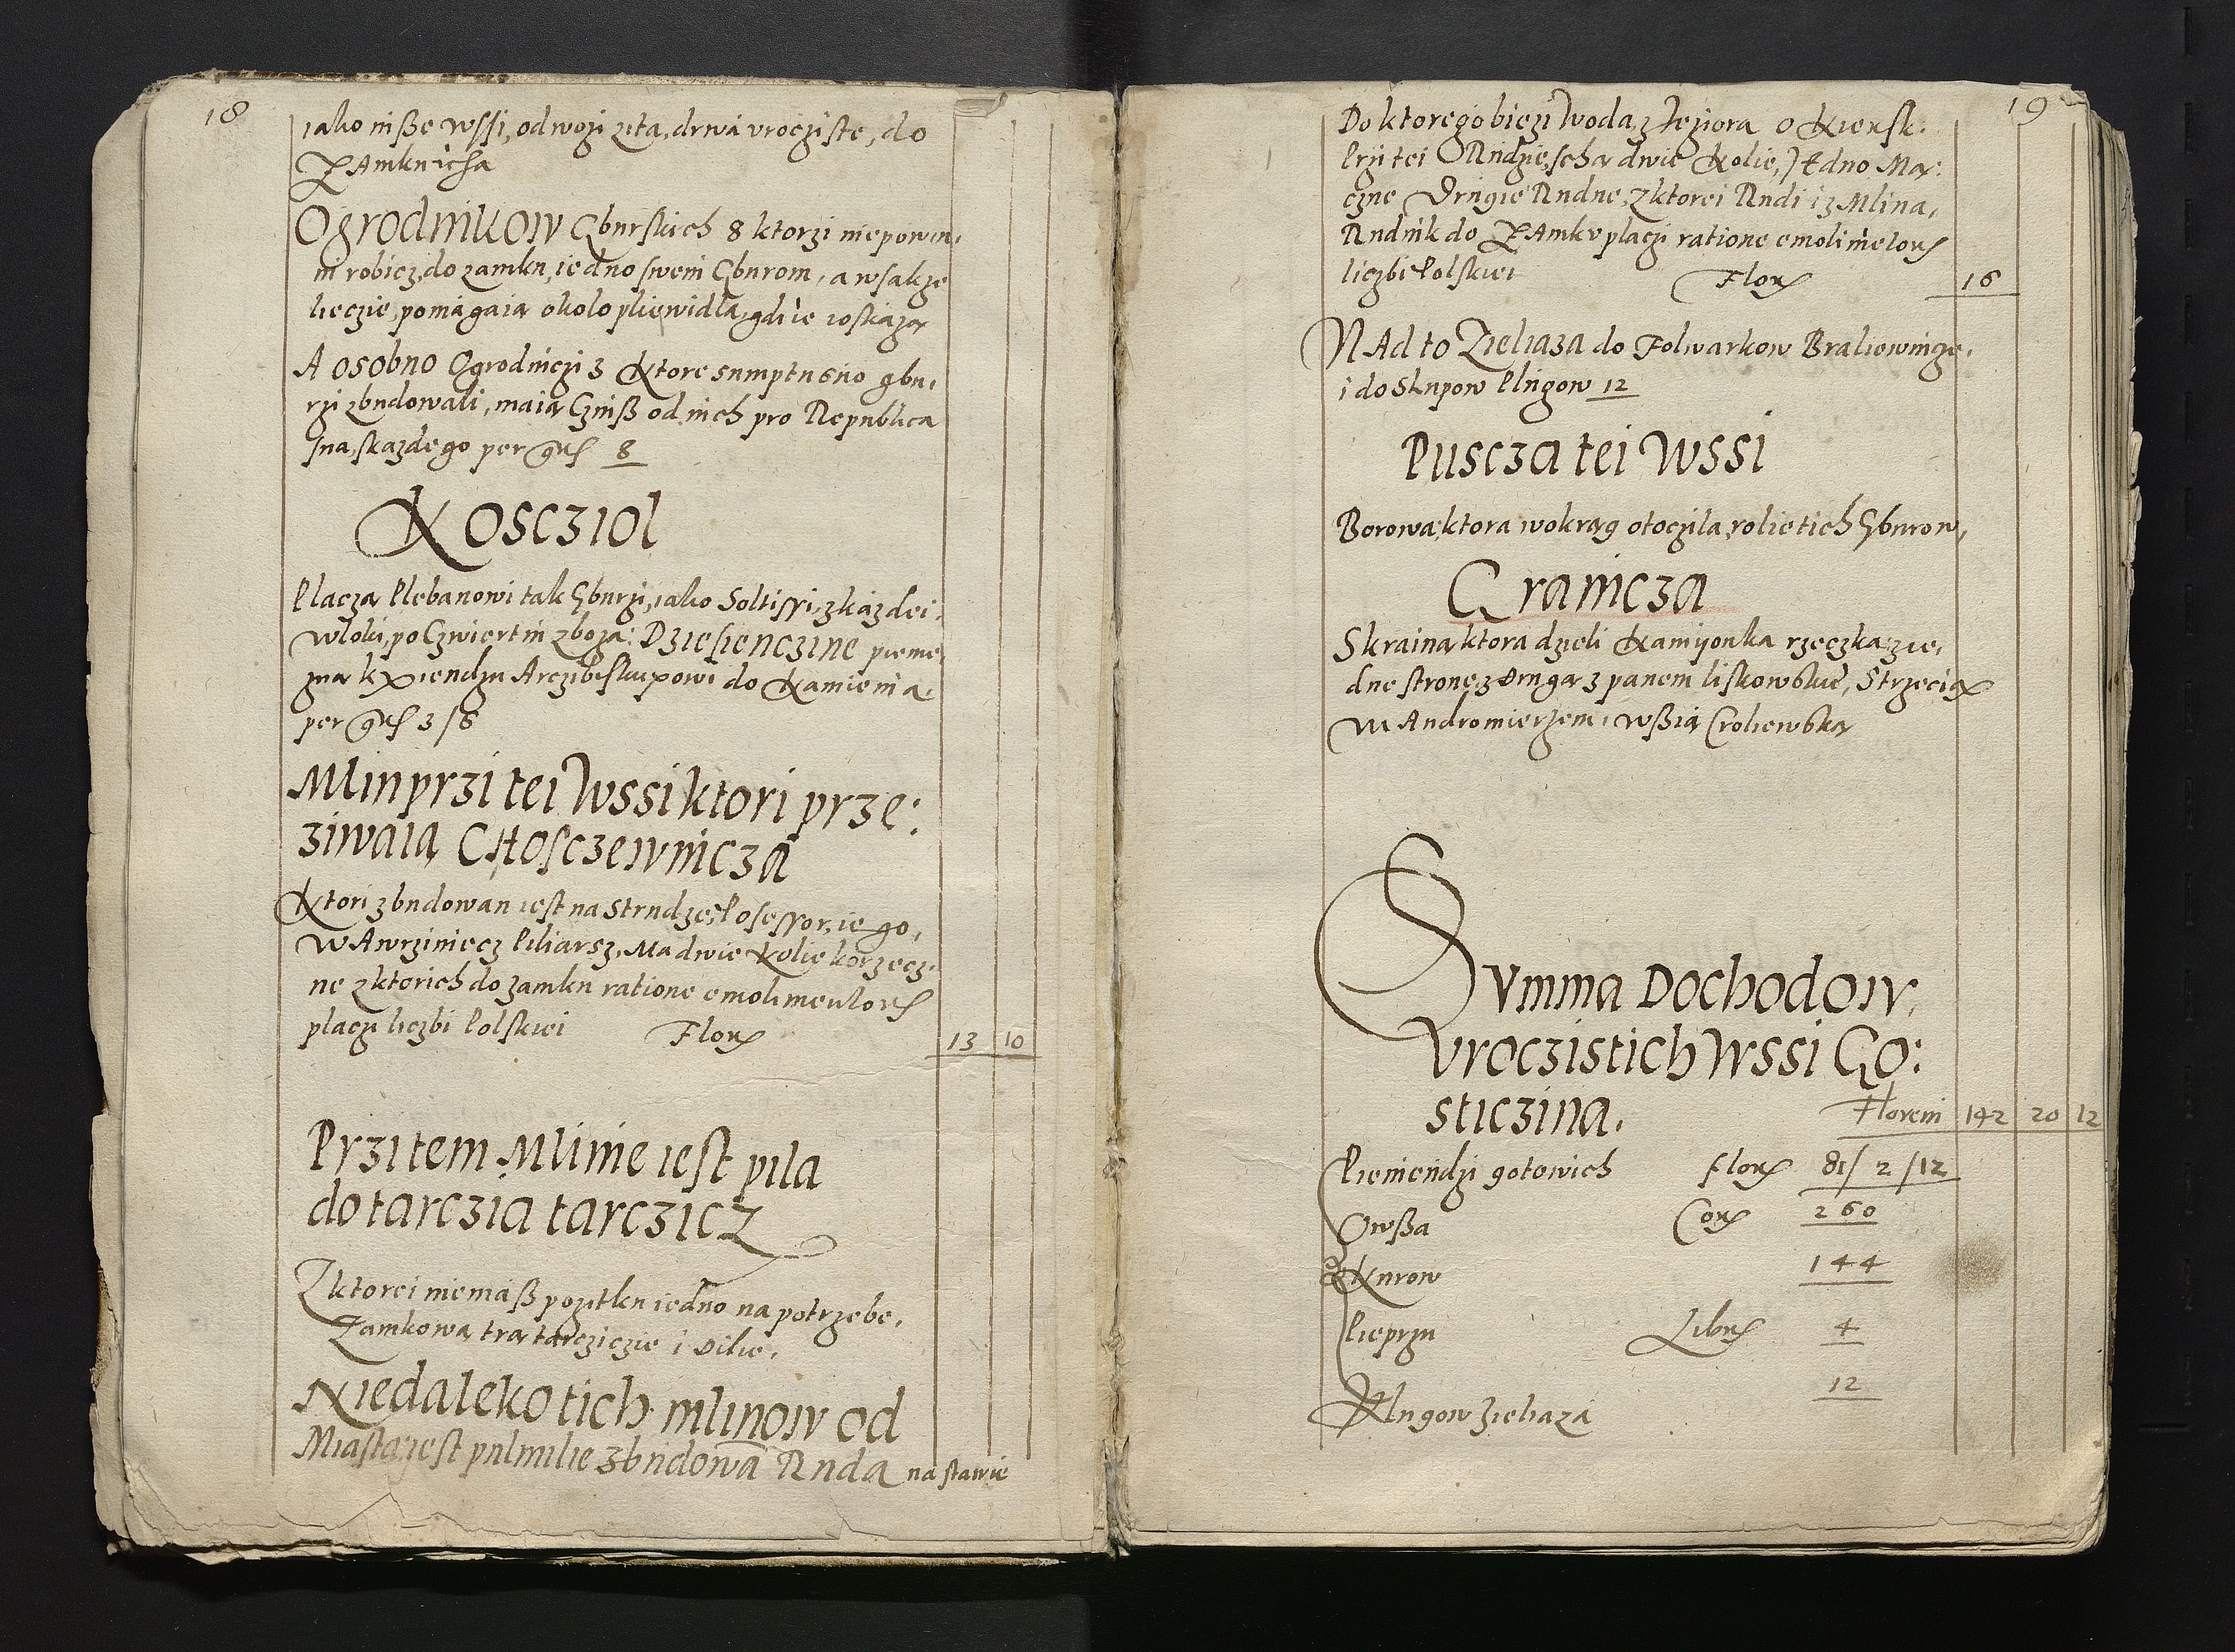 18
iako insze wssi, odwozi zita, drwa vrocziste, do
ZAmku icha
Ogrodnikow Gburskich 8 ktorzi niepowin,
ni robicz, do zamku, iedno swem Gburom, a wsakze
lieczie, pomagaia okolo pliewidla, gdi ie roskaza
A osobno Ogrodniczi 3 Ktore sumptu sno gbu,
rzi zbudowali, maia Czinß od nich pro Republica
sna, skazdego per grß 8
Kosczıol
Placza Plebanowi tak Gburzi, iako Soltissi, z kazdei,
wloki, po Czwiertni zboza: Dziesienczine pienie,
zna kxiendzu Arczibiskupowi do Kamienia.
per grß 3/6
Mlin przi tei Wssi ktori prze:
ziwaia CHosczewnicza
Ktori zbudowan iest na Strudze, Posessor, iego,
WAwrziniecz Piliarsz, Ma dwie Kolie korzecz,
ne z ktorich do zamku ratione emolimentorß
placzi liczbi Polskiei Flor 13 10
Przi tem Mlinie iest pila
do tarczia tarczicz
Zktorei niemasz pozitku iedno na potrzebe,
Zamkowa tra tarczicie i Dilie,
Niedaleko tich mlinow od
Miasta, iest pulmilie zbudowa Ruda na stawie
19
Do ktorego biezi Woda, z Jeziora o Kiersk.
Przi tei Rudzie, scha dwie Kolie, Jedno Ma:
czne Drugie Rudne, z ktorei Rudi i z Mlina,
Rudnik do ZAmku placzi ratione emolimetorß
liczbi Polskiei Flor 16
NAd to Zieliaza do Folwarkow Braliewnize,
i do Skupow Plugow 12
Puscza tei Wssi
Borowa, ktora wokrag otoczila, rolie tich Gburow,
Granicza
Skraina ktora dzieli Kamijonka rzeczka, zie,
dne strone, z Druga z panem liskowskiē, Strzecia
m Andromierzem, wßia Croliewska
SVmma Dochodow,
Vroczistich Wssi Go:
sticzina. Floreni 142 20 12
Pieniendzi gotowich Flor 81/ 2 /12
Owßa Cor 260
Kurow 144
Pieprzu Librß 4
Plugow Zieliaza 12